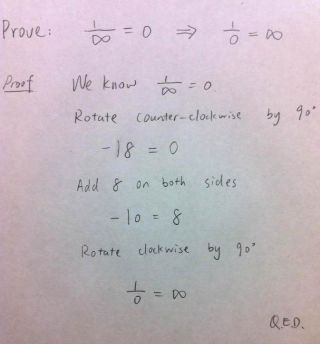 Prove: 1/∞ = 0 ⇒ 1/0 = ∞
Proof We know 1/∞ = 0.
Rotate counter-clockwise by 90°
-18 = 0
Add 8 on both sides
-10 = 8
Rotate clockwise by 90°
1/0 = ∞
Q.E.D.